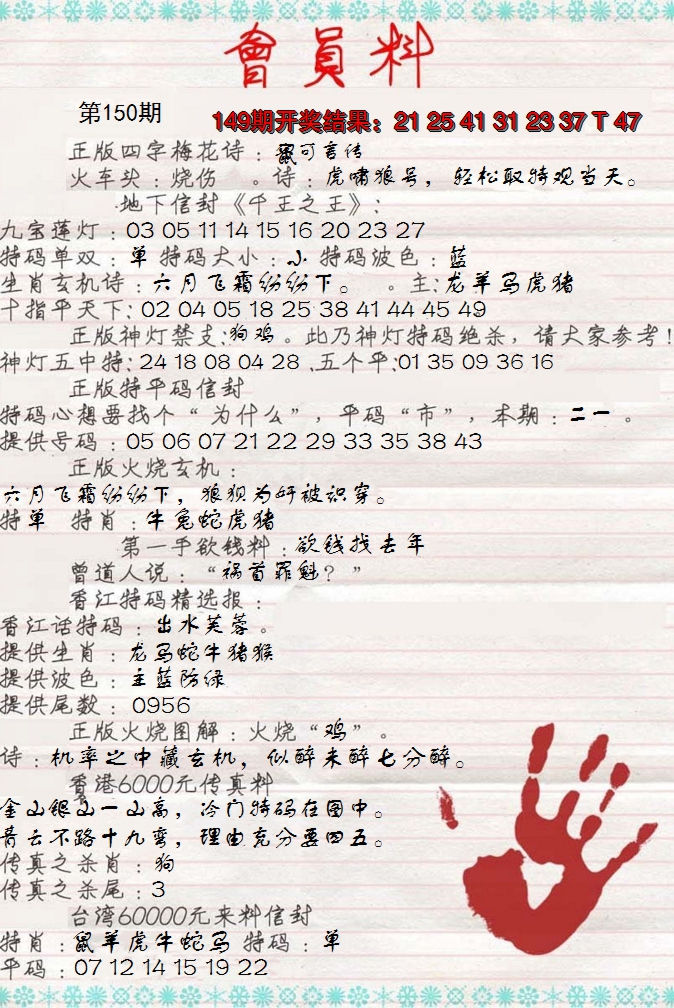 會員料
第150期
149期开奖结果：21 25 41 31 23 37 T 47
正版四字梅花诗：鼠可言传
火车头：烧伤 。诗：虎啸狼号，轻松取特观当天。
地下信封《千王之王》：
九宝莲灯：03 05 11 14 15 16 20 23 27
特码单双：单 特码大小：小 特码波色：蓝
生肖玄机诗：六月飞霜纷纷下。 。主：龙羊马虎猪
十指平天下：02 04 05 18 25 38 41 44 45 49
正版神灯禁支：狗鸡。此乃神灯特码绝杀，请大家参考！
神灯五中特：24 18 08 04 28 .五个平：01 35 09 36 16
正版特平码信封
特码心想要找个“为什么”，平码“市”，本期：二一 。
提供号码：05 06 07 21 22 29 33 35 38 43
正版火烧玄机：
六月飞霜纷纷下，狼狈为奸被识穿。
特单 特肖：牛兔蛇虎猪
第一手欲钱料：欲钱找去年
曾道人说：“祸首罪魁？”
香江特码精选报：
香江话特码：出水芙蓉。
提供生肖：龙马蛇牛猪猴
提供波色：主蓝防绿
提供尾数：0956
正版火烧图解：火烧“鸡”。
诗：机率之中藏玄机，似醉未醉七分醉。
香港6000元传真料
金山银山一山高，冷门特码在图中。
青云不路十九弯，理由充分要四五。
传真之杀肖：狗
传真之杀尾：3
台湾60000元来料信封
特肖：鼠羊虎牛蛇马 特码：单
平码：07 12 14 15 19 22